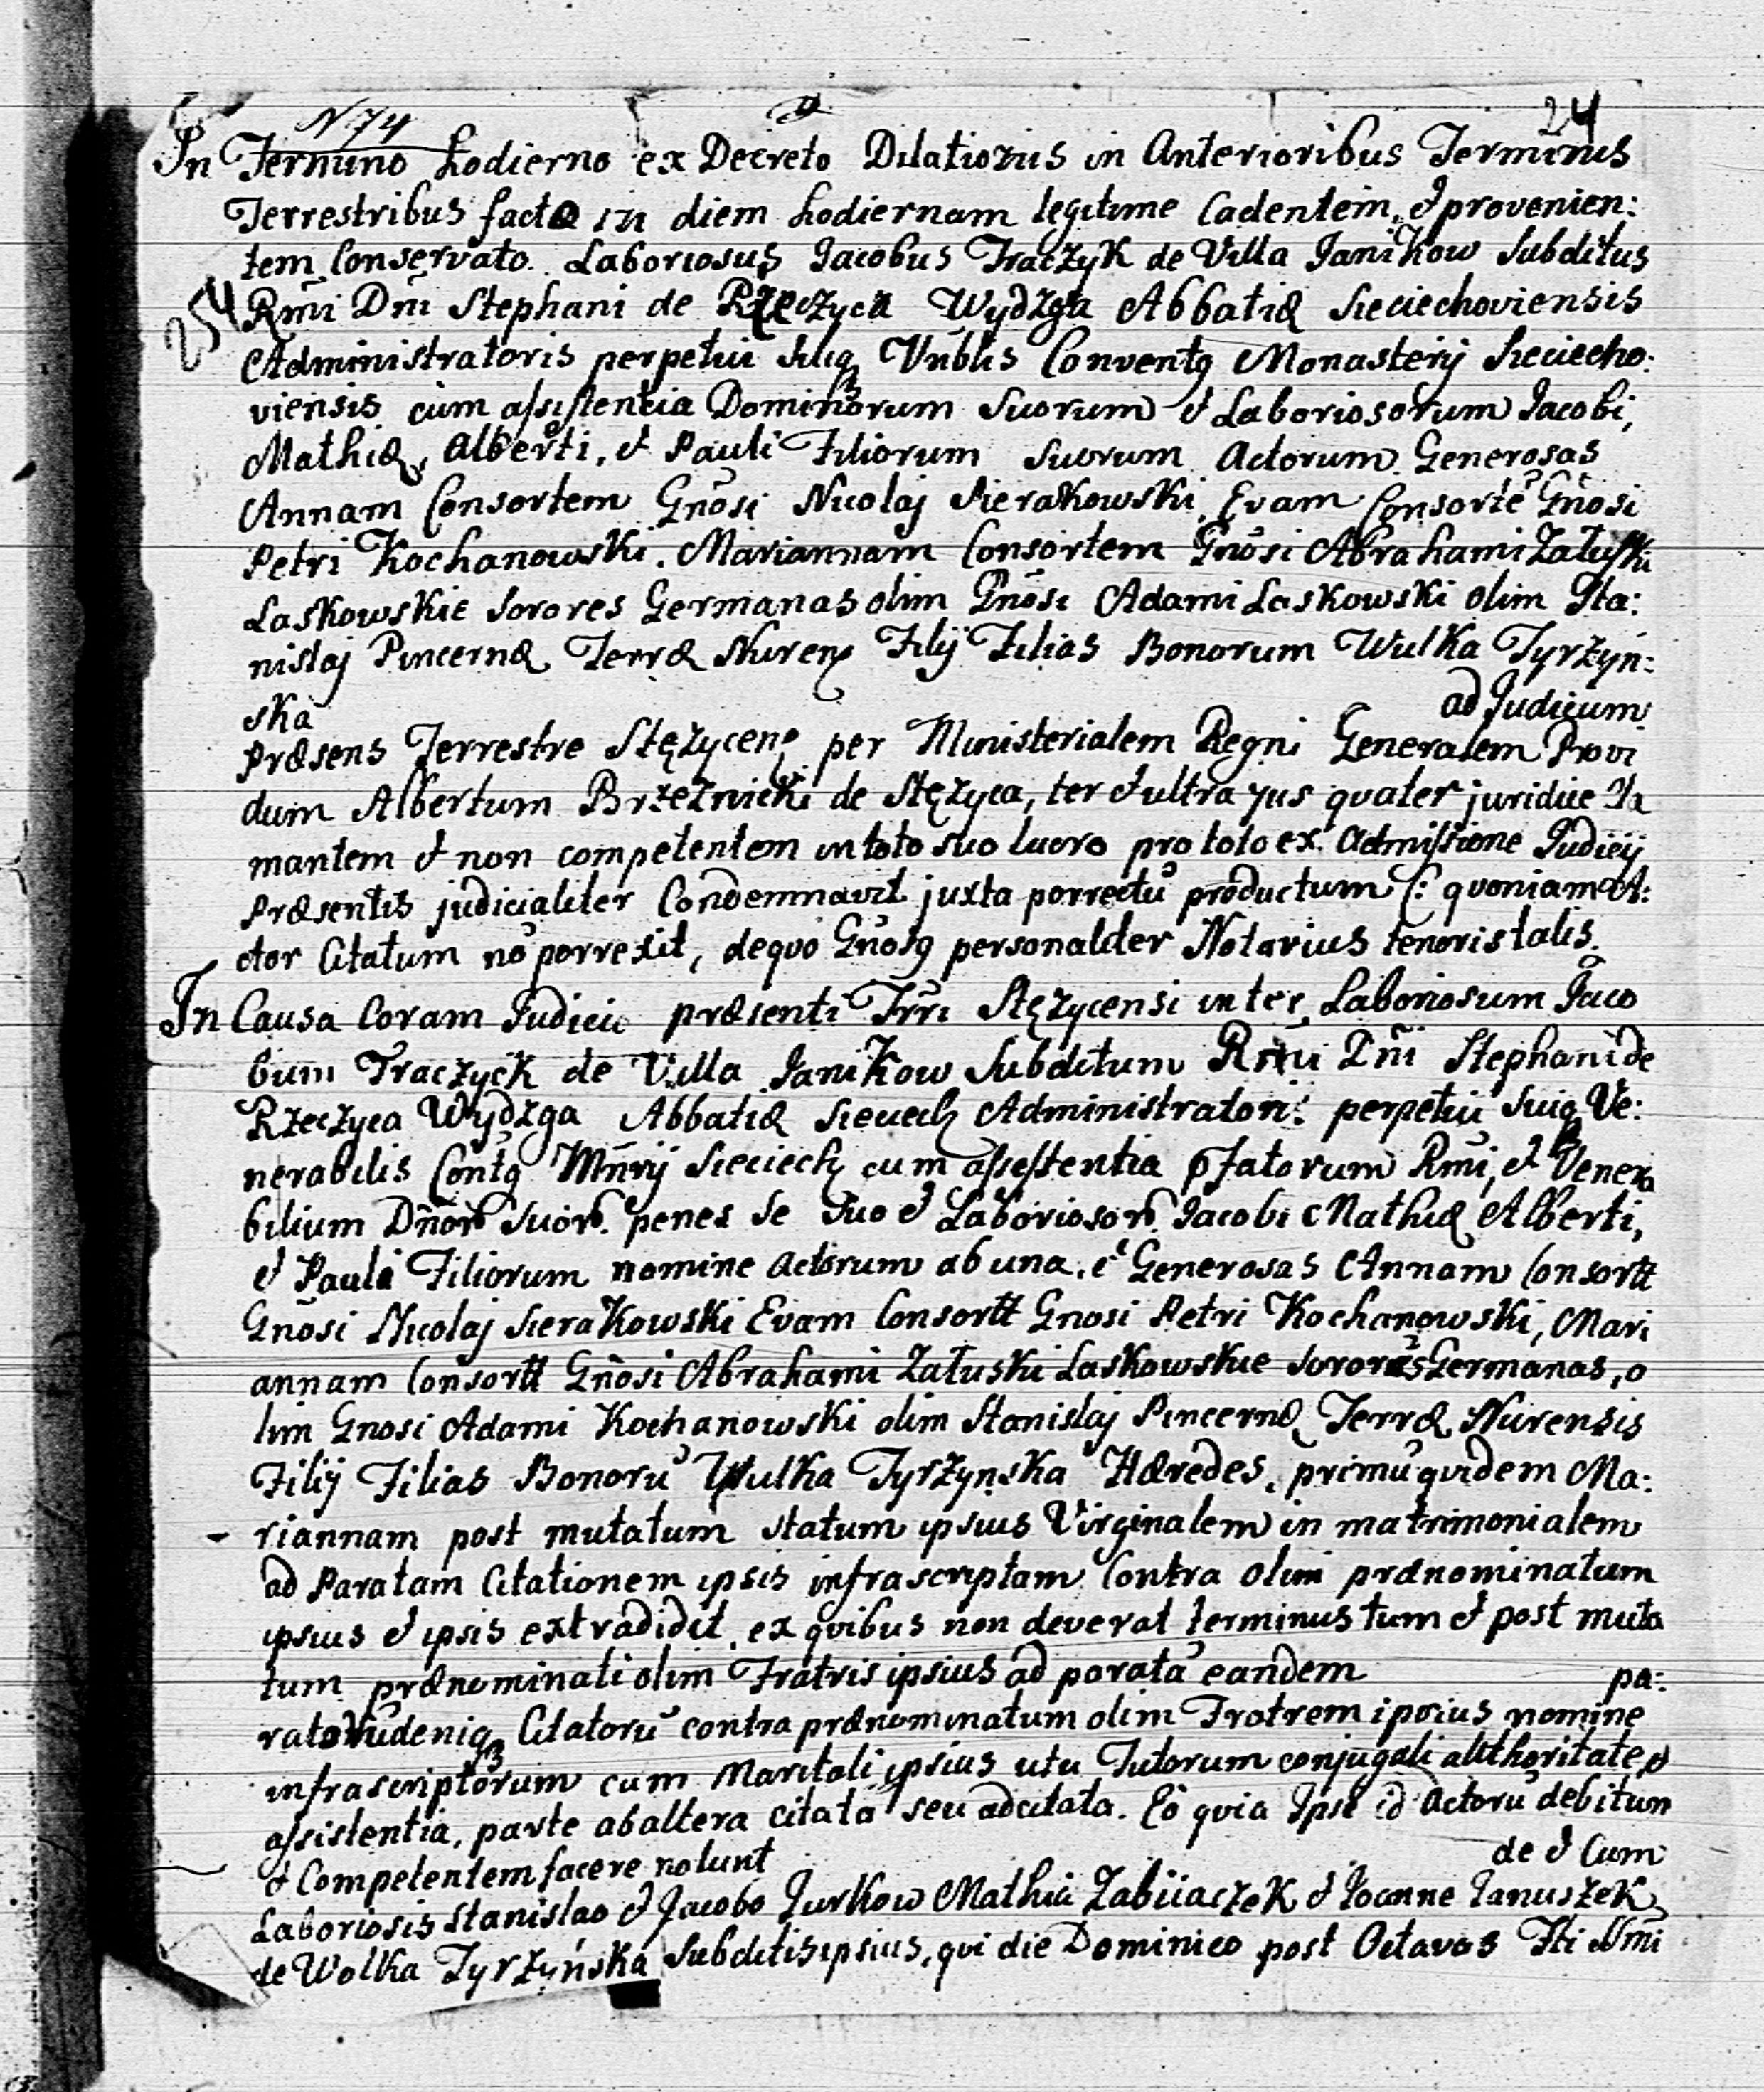 N 74
24
In Termino hodierno ex Decreto Dilationis in Anterioribus Terminis
Terrestribus factæ in diem hodiernam legitime Cadentem, & provenien:
tem Conservato. Laboriosus Jacobus Traczyk de Villa Janikow Subditus
254
Rmi Dni Stephani de Rzeczyca Wydzga Abbatiæ Sieciechoviensis
Administratoris perpetui suiq Vnblis Conventq Monasterij Sieciecho:
viensis cum assistentia Dominorum Suorum & Laboriosorum Jacobi,
Mathiæ, Alberti, & Pauli Filiorum Suorum Actorum Generosas
Annam Consortem Gnosi Nicolaj Sierakowski, Evam Consorte Gnosi
Petri Kochanowski. Mariannam Consortem Gnosi Abrahami Załuski
Laskowskie Sorores Germanas olim Gnosi Adami Laskowski olim Sta:
nislaj Pincernæ Terræ Nuren Filij Filias Bonorum Wulka Tyrzyn:
ska
ad Judicium
Præsens Terrestre Stężycen per Ministerialem Regni Generalem Provi
dum Albertum Brzeznicki de Stężyca, ter & ultra jus quater juridice
mantem & non competentem in toto suo lucro pro toto ex Admissione Judicij
Præsentis judicialiter Condemnavit juxta porrectu productum (: quoniam A:
ctor Citatum no porrexit, de quo Gnosq personaliter Notarius tenoris talis.
In Causa Coram Judicio præsenti Trri Stężycensi inter Laboriosum Jaco
bum Traczyck de Villa Janikow Subditum Rmi Dni Stephani de
Rzeczyca Wydzga Abbatiæ Sieciech Administratoris perpetui Suiq Ve:
nerabilis Contq Mnrij Sieciech cum assistentia pfatorum Rmi, & Venera
bilium Dnor Suor. penes se suo & Laborioson Jacobi Mathiæ Alberti,
& Pauli Filiorum nomine Actorum ab una, & Generosas Annam Consortt
Gnosi Nicolaj Sierakowski Evam Consortt Gnosi Petri Kochanowski, Mari
annam Consortt Gnosi Abrahami Załuski Laskowskie Sorores Germanas, o
lim Gnosi Adami Kochanowski olim Stanislaj Pincernæ Terræ Nurensis
Filij Filias Bonoru Wulka Tyrzynska Hæredes, primu quidem Ma:
riannam post mutatum statum ipsius Virginalem in matrimonialem
ad Paratam Citationem ipsis infrascriptam Contra olim prænominatum
ipsius & ipsis extradidit, ex quibus non deverat terminus tum & post muta
tum prænominati olim Fratris ipsius ad parata eandem pa:
Citatoru contra prænominatum olim Fratrem ipsius nomine
infrascriptorum cum Maritali ipsius uti Tutorum conjugali authoritate, &
assistentia, parte ab altera citata seu adcitata. Eo quia Ipse id Actoru debitum
& Competentem facere nolunt de & Cum
Laboriosis Stanislao & Jacobo Jurkow Mathia Zabiiaczek & Joanne Januszek
de Wolka Tyrzyńska Subditis ipsius, qui die Dominico post Octavas